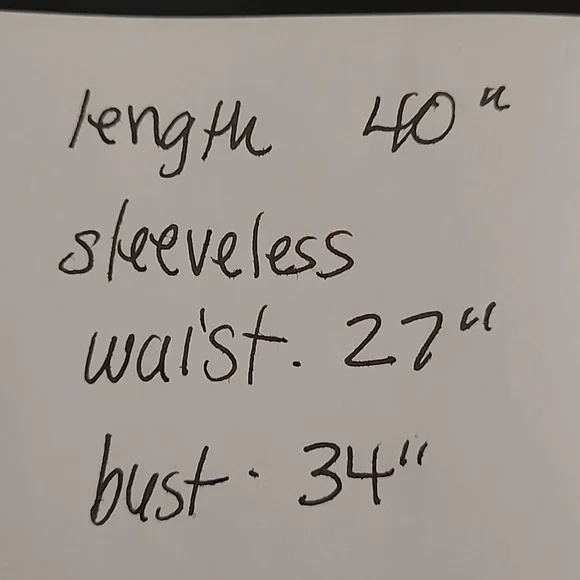 length 40"
sleeveless
waist. 27"
bust. 34"